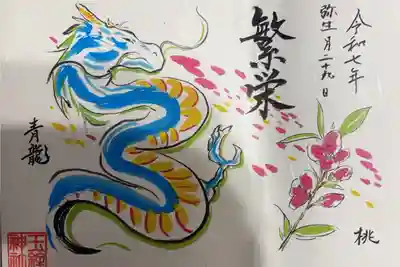 令和七年
弥生月二十九日
繁栄
青龍
桃
神社